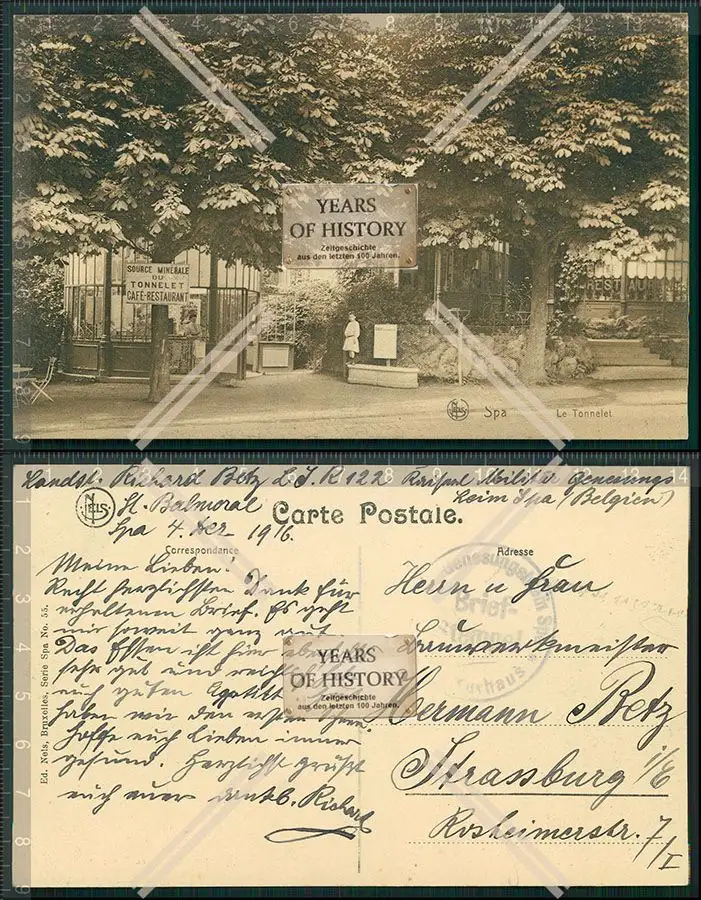 YEARS
OF HISTORY
Zeitgeschichte
aus den letzten 100 Jahren.
SOURCE MINERALE
DU
TONNELET
CAFÉ-RESTAURANT
RESTAURANT
NELS
Spa
Le Tonnelet
Landst. Richard Betz L.I.R 122 Kaiserl Militär Genesungs
heim Spa (Belgien)
NELS
H. Balmoral
Spa 4. Dez. 1916.
Carte Postale.
Correspondance
Adresse
Meine Lieben!
Recht herzlichsten Dank für
erhaltenen Brief. Es geht
mir soweit ganz gut
Das Essen ist hier
sehr gut und
guten Appetit
haben wir den ersten
Hoffe euch Lieben immer
gesund. Herzlichst grüßt
euch euer dankb. Richard
Herrn u Frau
Bauwerkmeister
Hermann Betz
Strassburg i/E
Rosheimerstr. 7/I
Genesungsheim Spa
Brief-
stempel
Kurhaus
YEARS
OF HISTORY
Zeitgeschichte
aus den letzten 100 Jahren.
Ed. Nels, Bruxelles, Serie Spa No. 55.